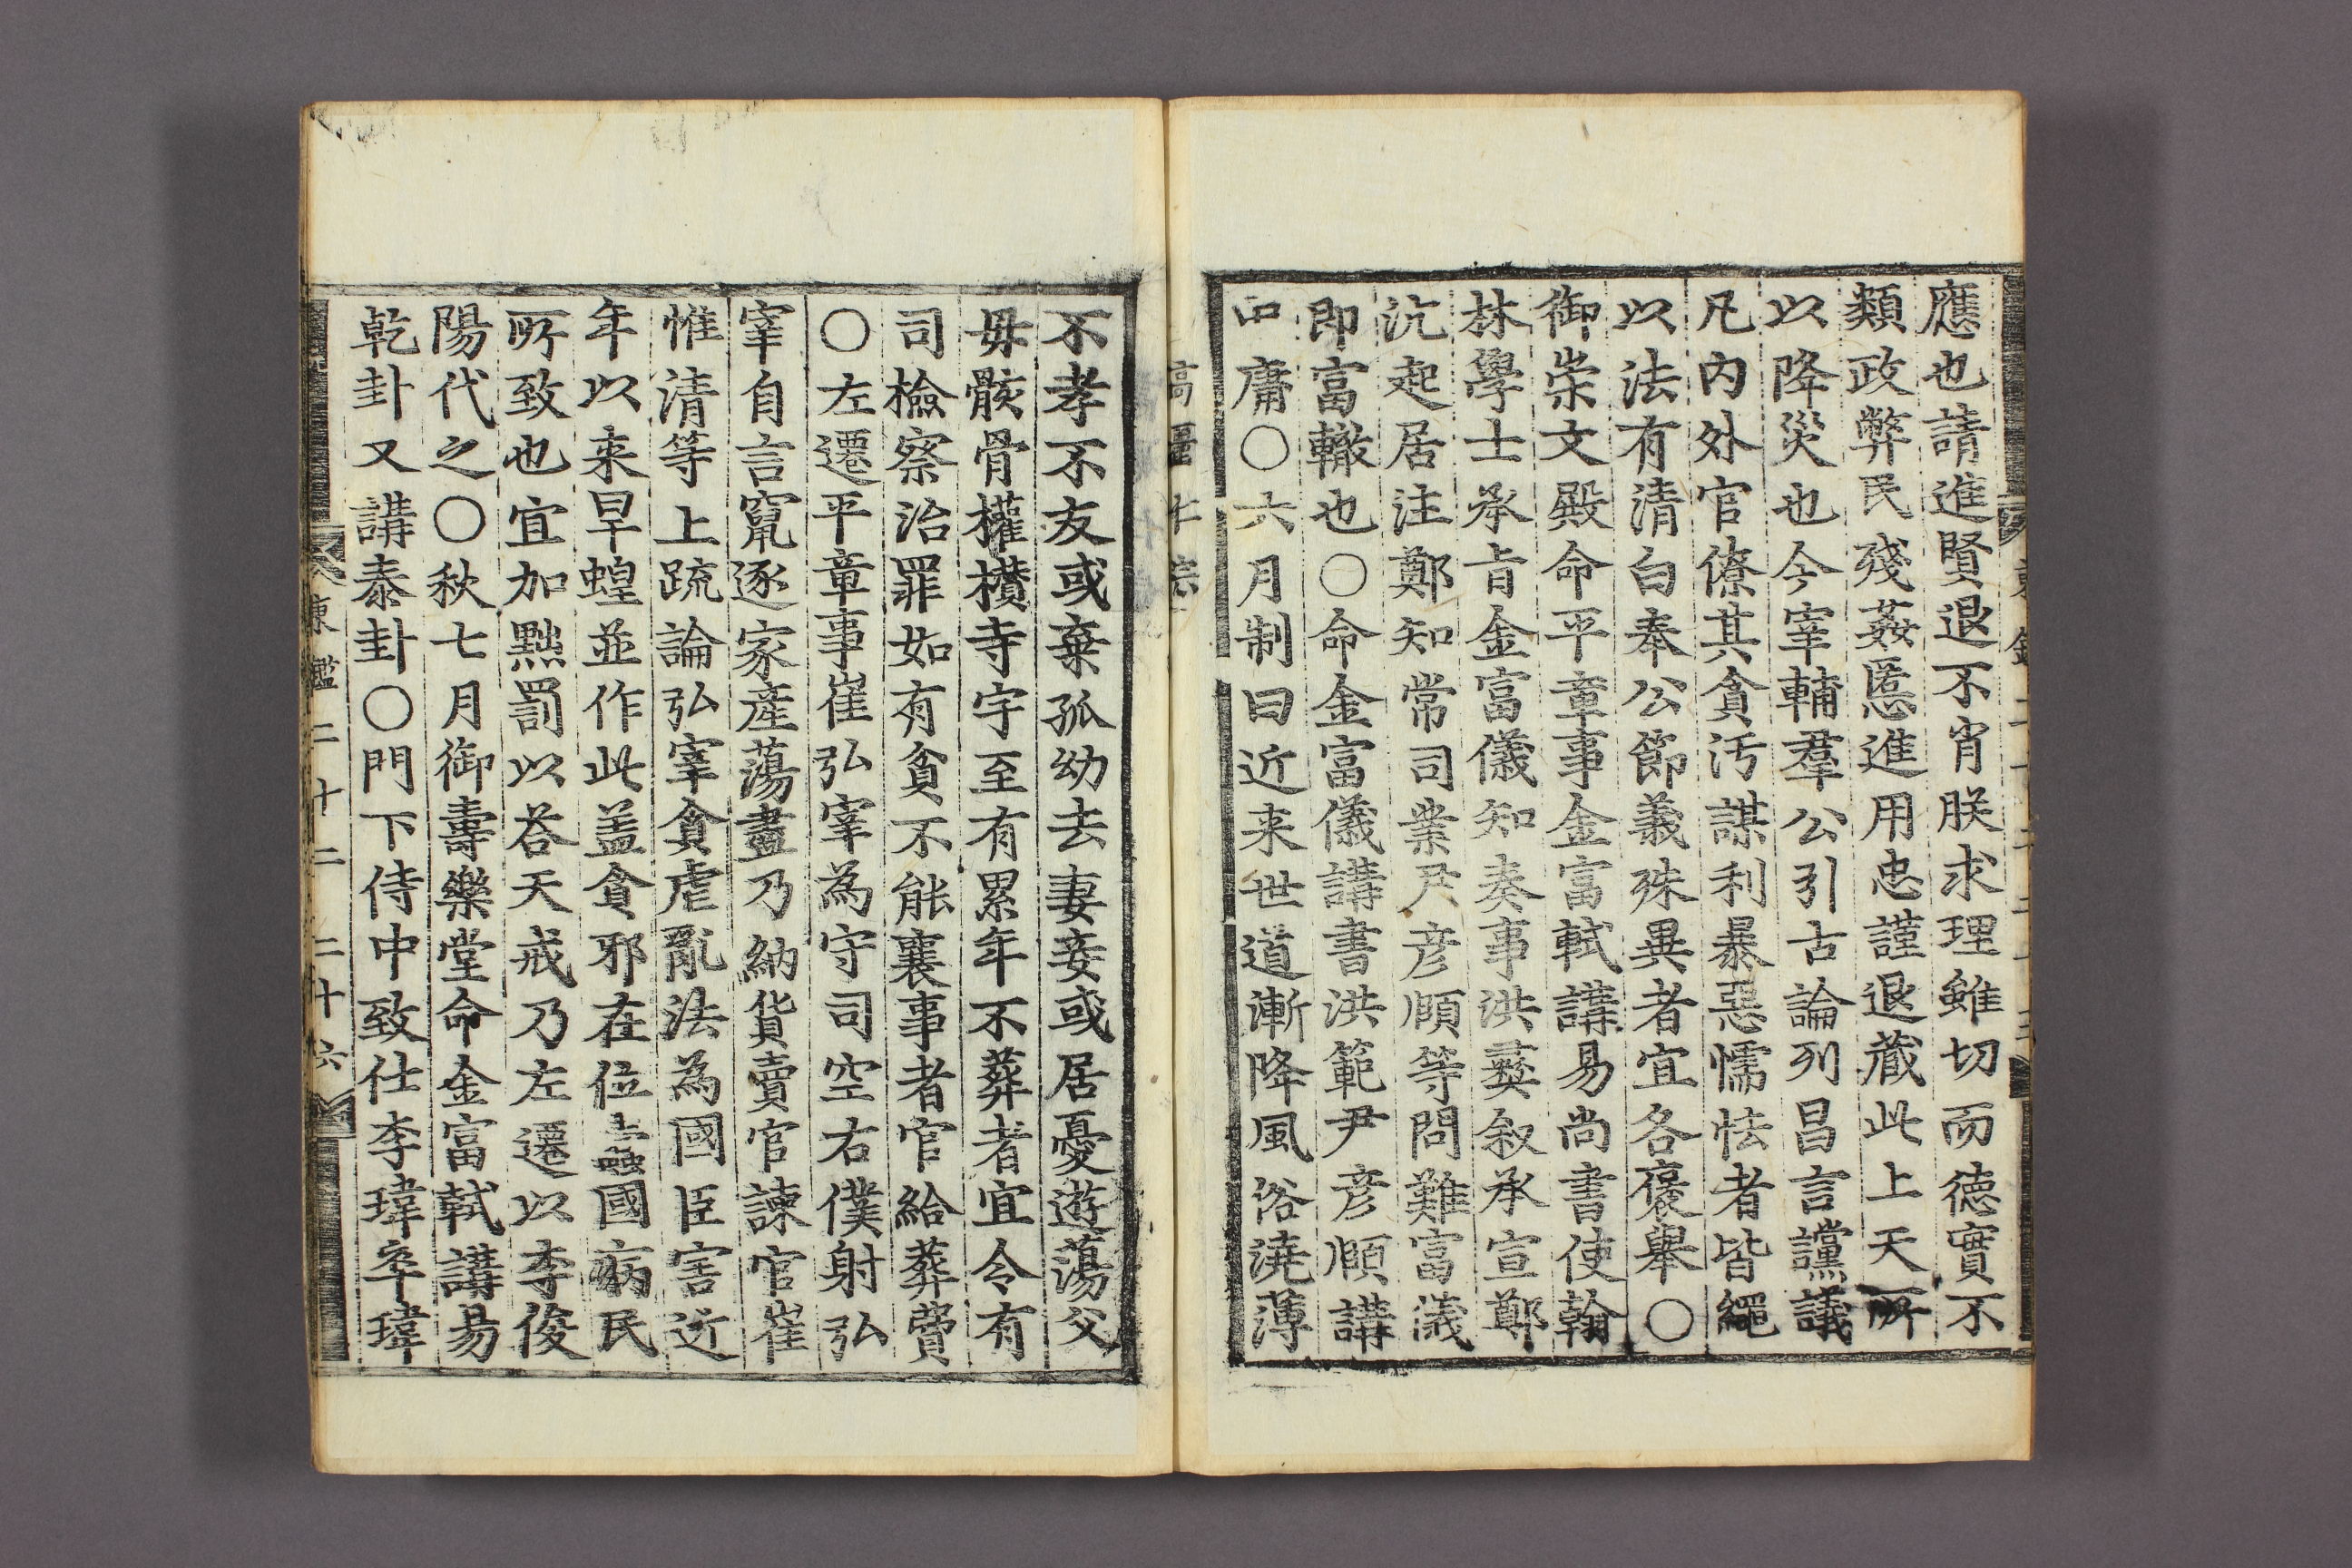 應也請進賢退不肖朕求理雖切而德實不
類政弊民殘姦慝進用忠謹退藏此上天所
以降災也今宰輔羣公引古論列昌言讜議
凡內外官僚其貪污謀利暴惡懦怯者皆繩
以法有清白奉公節義殊異者宜各褒舉〇
御崇文殿命平章事金富軾講易尚書使翰
林學士承旨金富儀知奏事洪彛叙承宣鄭
沆起居注鄭知常司業尹彦頤等問難富儀
即富轍也〇命金富儀講書洪範尹彦頤講
中庸〇六月制曰近来世道漸降風俗澆薄
不孝不友或棄孤幼去妻妾或居憂遊蕩父
母骸骨權攢寺宇至有累年不葬者宜令有
司檢察治罪如有貧不能襄事者官給葬費
〇左遷平章事崔弘宰為守司空右僕射弘
宰自言竄逐家産蕩盡乃納貨賣官諫官崔
惟清等上疏論弘宰貪虐亂法為國臣害近
年以来旱蝗並作此盖貪邪在位蠹國病民
所致也宜加黜罰以荅天戒乃左遷以李俊
陽代之〇秋七月御壽樂堂命金富軾講易
乾卦又講泰卦〇門下侍中致仕李瑋卒瑋
東鑑二十二 二十六